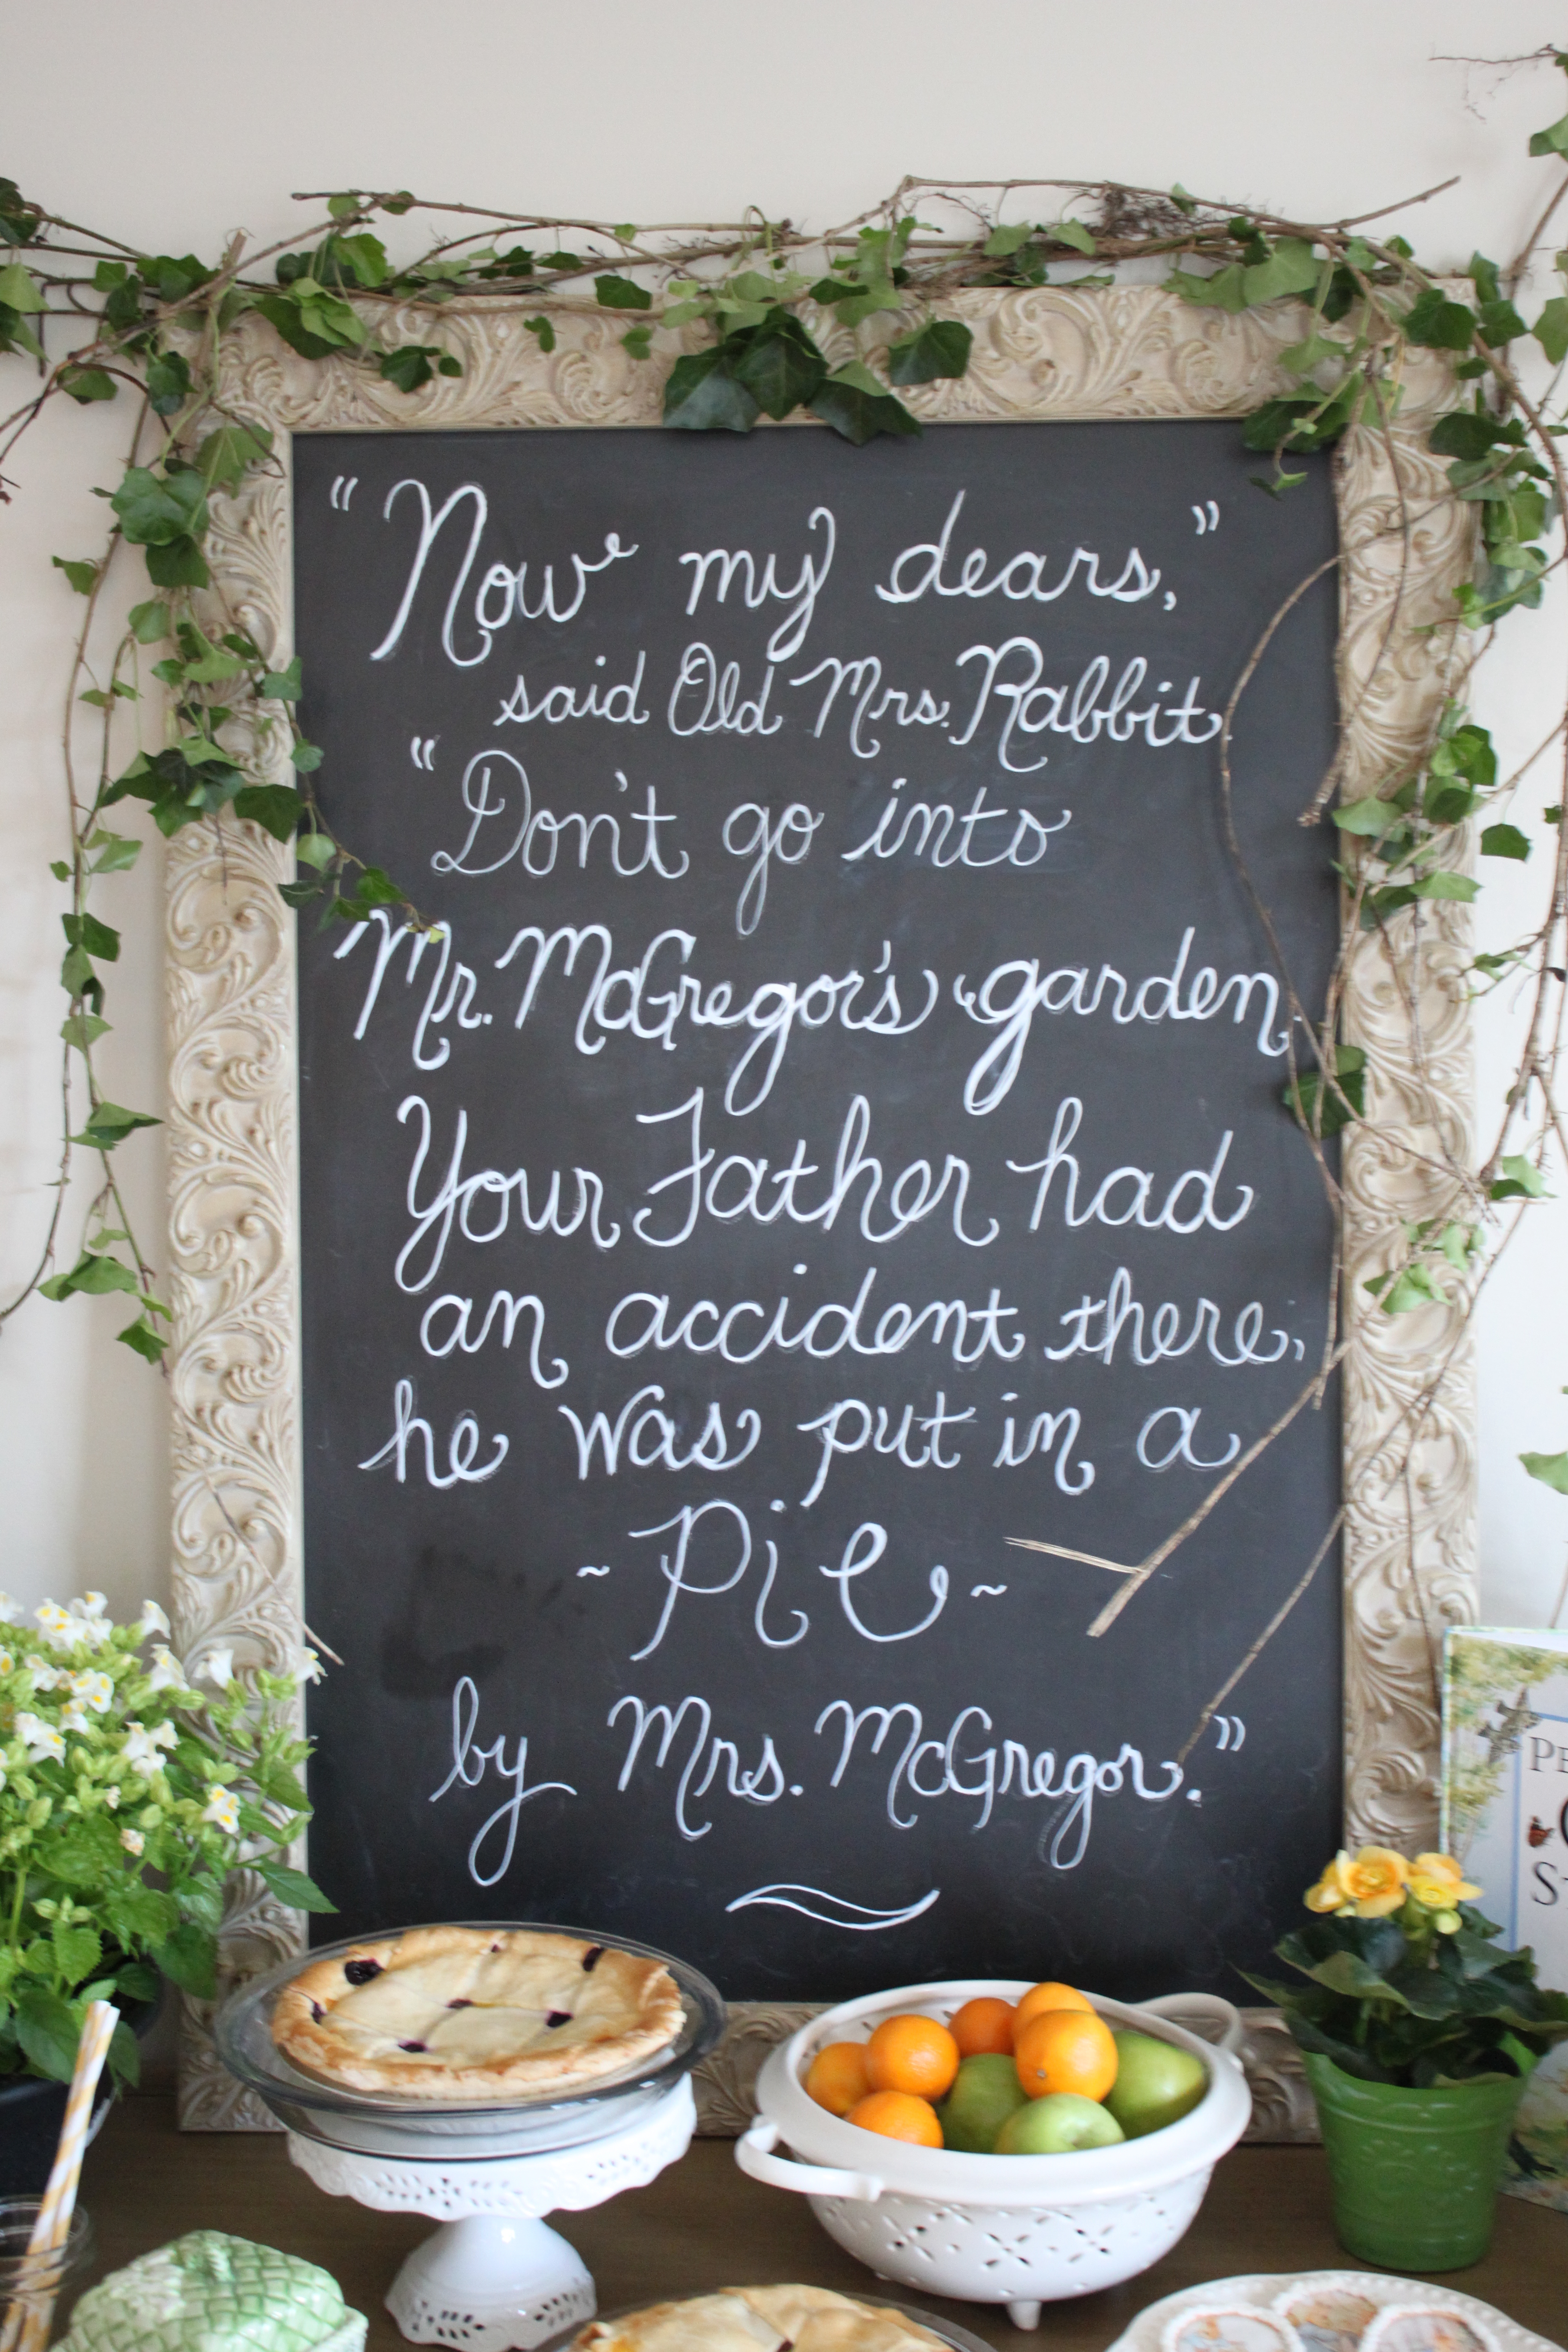 "Now my dears,"
said Old Mrs. Rabbit.
"Don't go into
Mr. McGregor's garden.
Your Father had
an accident there,
he was put in a
~ Pie ~
by Mrs. McGregor."